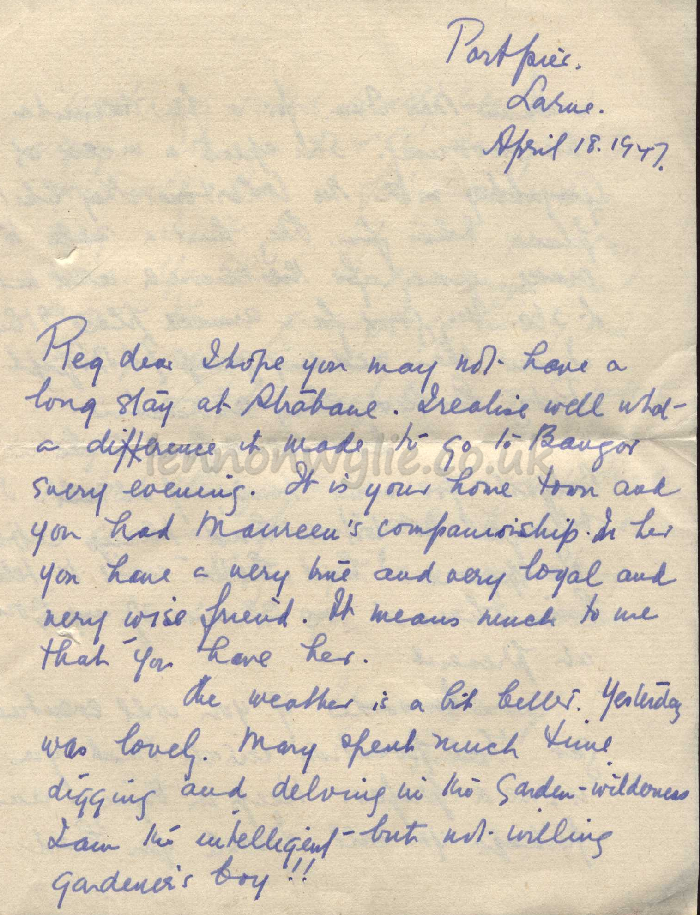 Portpier.
Larne.
April 18. 1947.
Peg dear I hope you may not have a
long stay at Strabane. I realise well what
a difference it made to go to Bangor
every evening. It is your home town and
lennonwylie.co.uk
you had Maureen's companionship. In her
you have a very true and very loyal and
very wise friend. It means much to me
that you have her.
the weather is a bit better. Yesterday
was lovely. Mary spent much time
digging and delving in the Garden-wilderness
I am the intelligent-but not-willing
gardener's boy!!